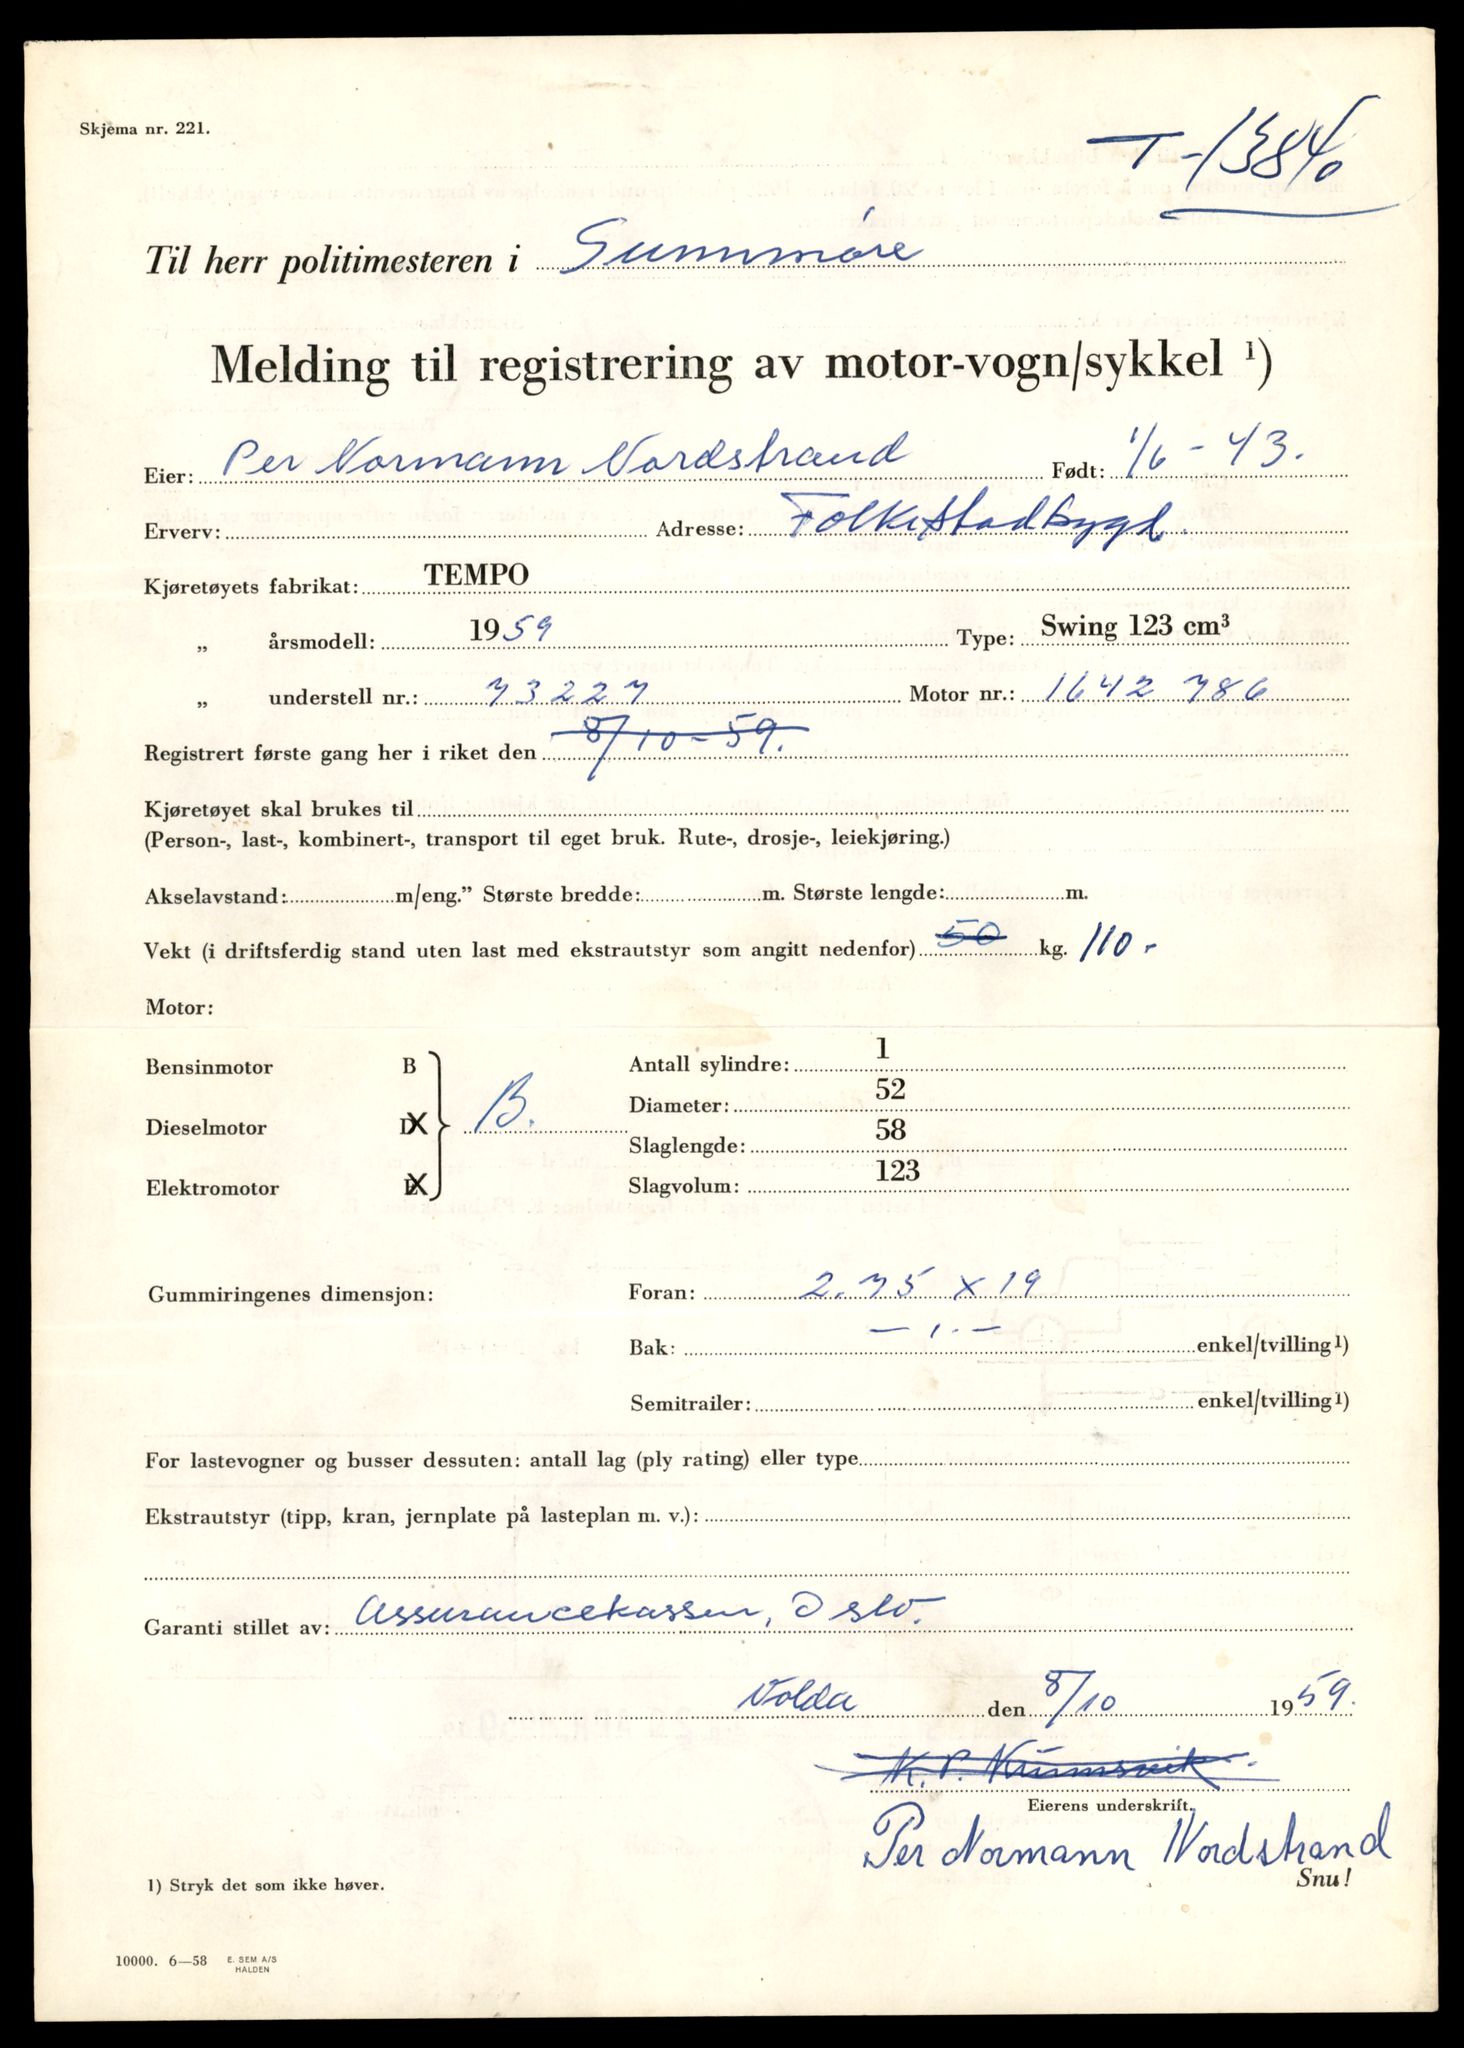 Skjema nr. 221.
T-13840
Til herr politimesteren i Sunnmöre
Melding til registrering av motor-vogn/sykkel 1)
Eier: Per Normann Nordstrand Født: 1/6 - 43.
Erverv: Adresse: Folkestadbygd.
Kjøretøyets fabrikat: TEMPO
„ årsmodell: 1959 Type: Swing 123 cm³
„ understell nr.: 73227 Motor nr.: 1642 786
Registrert første gang her i riket den 8/10-59.
Kjøretøyet skal brukes til
(Person-, last-, kombinert-, transport til eget bruk. Rute-, drosje-, leiekjøring.)
Akselavstand: m/eng.” Største bredde: m. Største lengde: m.
Vekt (i driftsferdig stand uten last med ekstrautstyr som angitt nedenfor) 50 kg. 110.-
Motor:
Bensinmotor B Antall sylindre: 1
Diameter: 52
Dieselmotor D B. Slaglengde: 58
Elektromotor E Slagvolum: 123
Gummiringenes dimensjon: Foran: 2.75 x 19
Bak: — „ — enkel/tvilling 1)
Semitrailer: enkel/tvilling 1)
For lastevogner og busser dessuten: antall lag (ply rating) eller type
Ekstrautstyr (tipp, kran, jernplate på lasteplan m. v.):
Garanti stillet av: Assurancekassen, Oslo.
Volda den 8/10 1959.
K. P.
Eierens underskrift.
Per Normann Nordstrand
Snu!
1) Stryk det som ikke høver.
10000. 6—58 E. SEM A/S
HALDEN